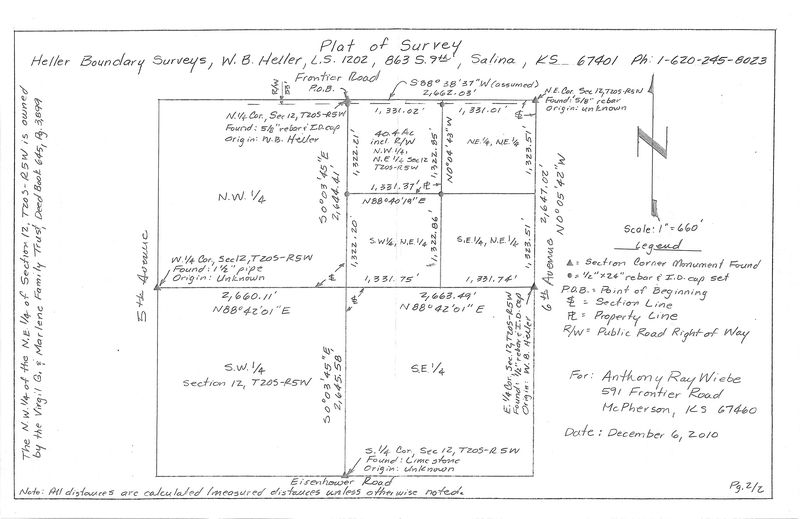 Plat of Survey
Heller Boundary Surveys, W.B. Heller, L.S. 1202, 863 S. 9th, Salina, KS 67401 Ph: 1-620-245-8023
Frontier Road
P.O.B.
R/W
55'
S88°38'37"W (assumed)
2,662.03'
N.E. Cor, Sec 12, T20S-R5W
Found: 5/8" rebar
Origin: unknown
N.1/4 Cor, Sec 12, T20S-R5W
Found: 5/8" rebar & I.D. cap
Origin: W.B. Heller
1,331.02'
1,331.01'
40.4 Ac
incl. R/W
N.W.1/4,
N.E.1/4 Sec 12
T20S-R5W
N.E.1/4, N.E.1/4
1,322.21'
1,322.85'
N0°04'43"W
1,323.51'
S0°03'45"E
2,644.41'
2,647.02'
N0°05'42"W
1,331.37'
N88°40'19"E
N.W.1/4
S.W.1/4, N.E.1/4
S.E.1/4, N.E.1/4
1,322.20'
1,322.86'
1,323.51'
W.1/4 Cor, Sec 12, T20S-R5W
Found: 1 1/2" pipe
Origin: Unknown
5th Avenue
6th Avenue
1,331.75'
1,331.74'
2,660.11'
N88°42'01"E
2,663.49'
N88°42'01"E
E.1/4 Cor, Sec. 12, T20S-R5W
Found: 1/2" rebar & I.D. cap
Origin: W.B. Heller
S.W.1/4
Section 12, T20S-R5W
S0°03'45"E
2,645.58
S.E.1/4
S.1/4 Cor, Sec 12, T20S-R5W
Found: Limestone
Origin: Unknown
Eisenhower Road
Note: All distances are calculated/measured distances unless otherwise noted.
The N.W.1/4 of the N.E.1/4 of Section 12, T20S-R5W is owned
by the Virgil G. & Marlene Family Trust, Deed Book 645, Pg 3,899
N
Scale: 1"=660'
Legend
▲ = Section Corner Monument Found
● = 1/2"x24" rebar & I.D. cap set
P.O.B. = Point of Beginning
℄ = Section Line
PL = Property Line
R/W = Public Road Right of Way
For: Anthony Ray Wiebe
591 Frontier Road
McPherson, KS 67460
Date: December 6, 2010
Pg. 2/2